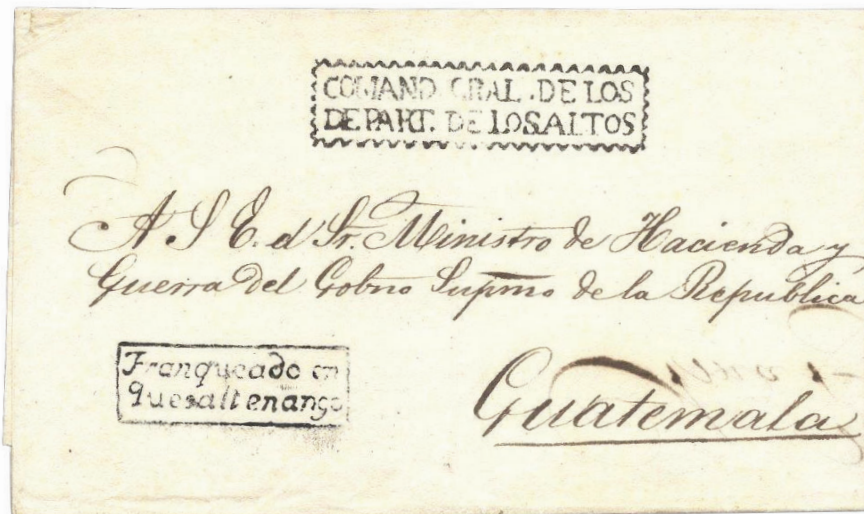 COMAND. GRAL. DE LOS
DEPART. DE LOS ALTOS
A S E. el Sr. Ministro de Hacienda y
Guerra del Gobno Supmo de la Republica
Franqueado en
Quesaltenango
Guatemala